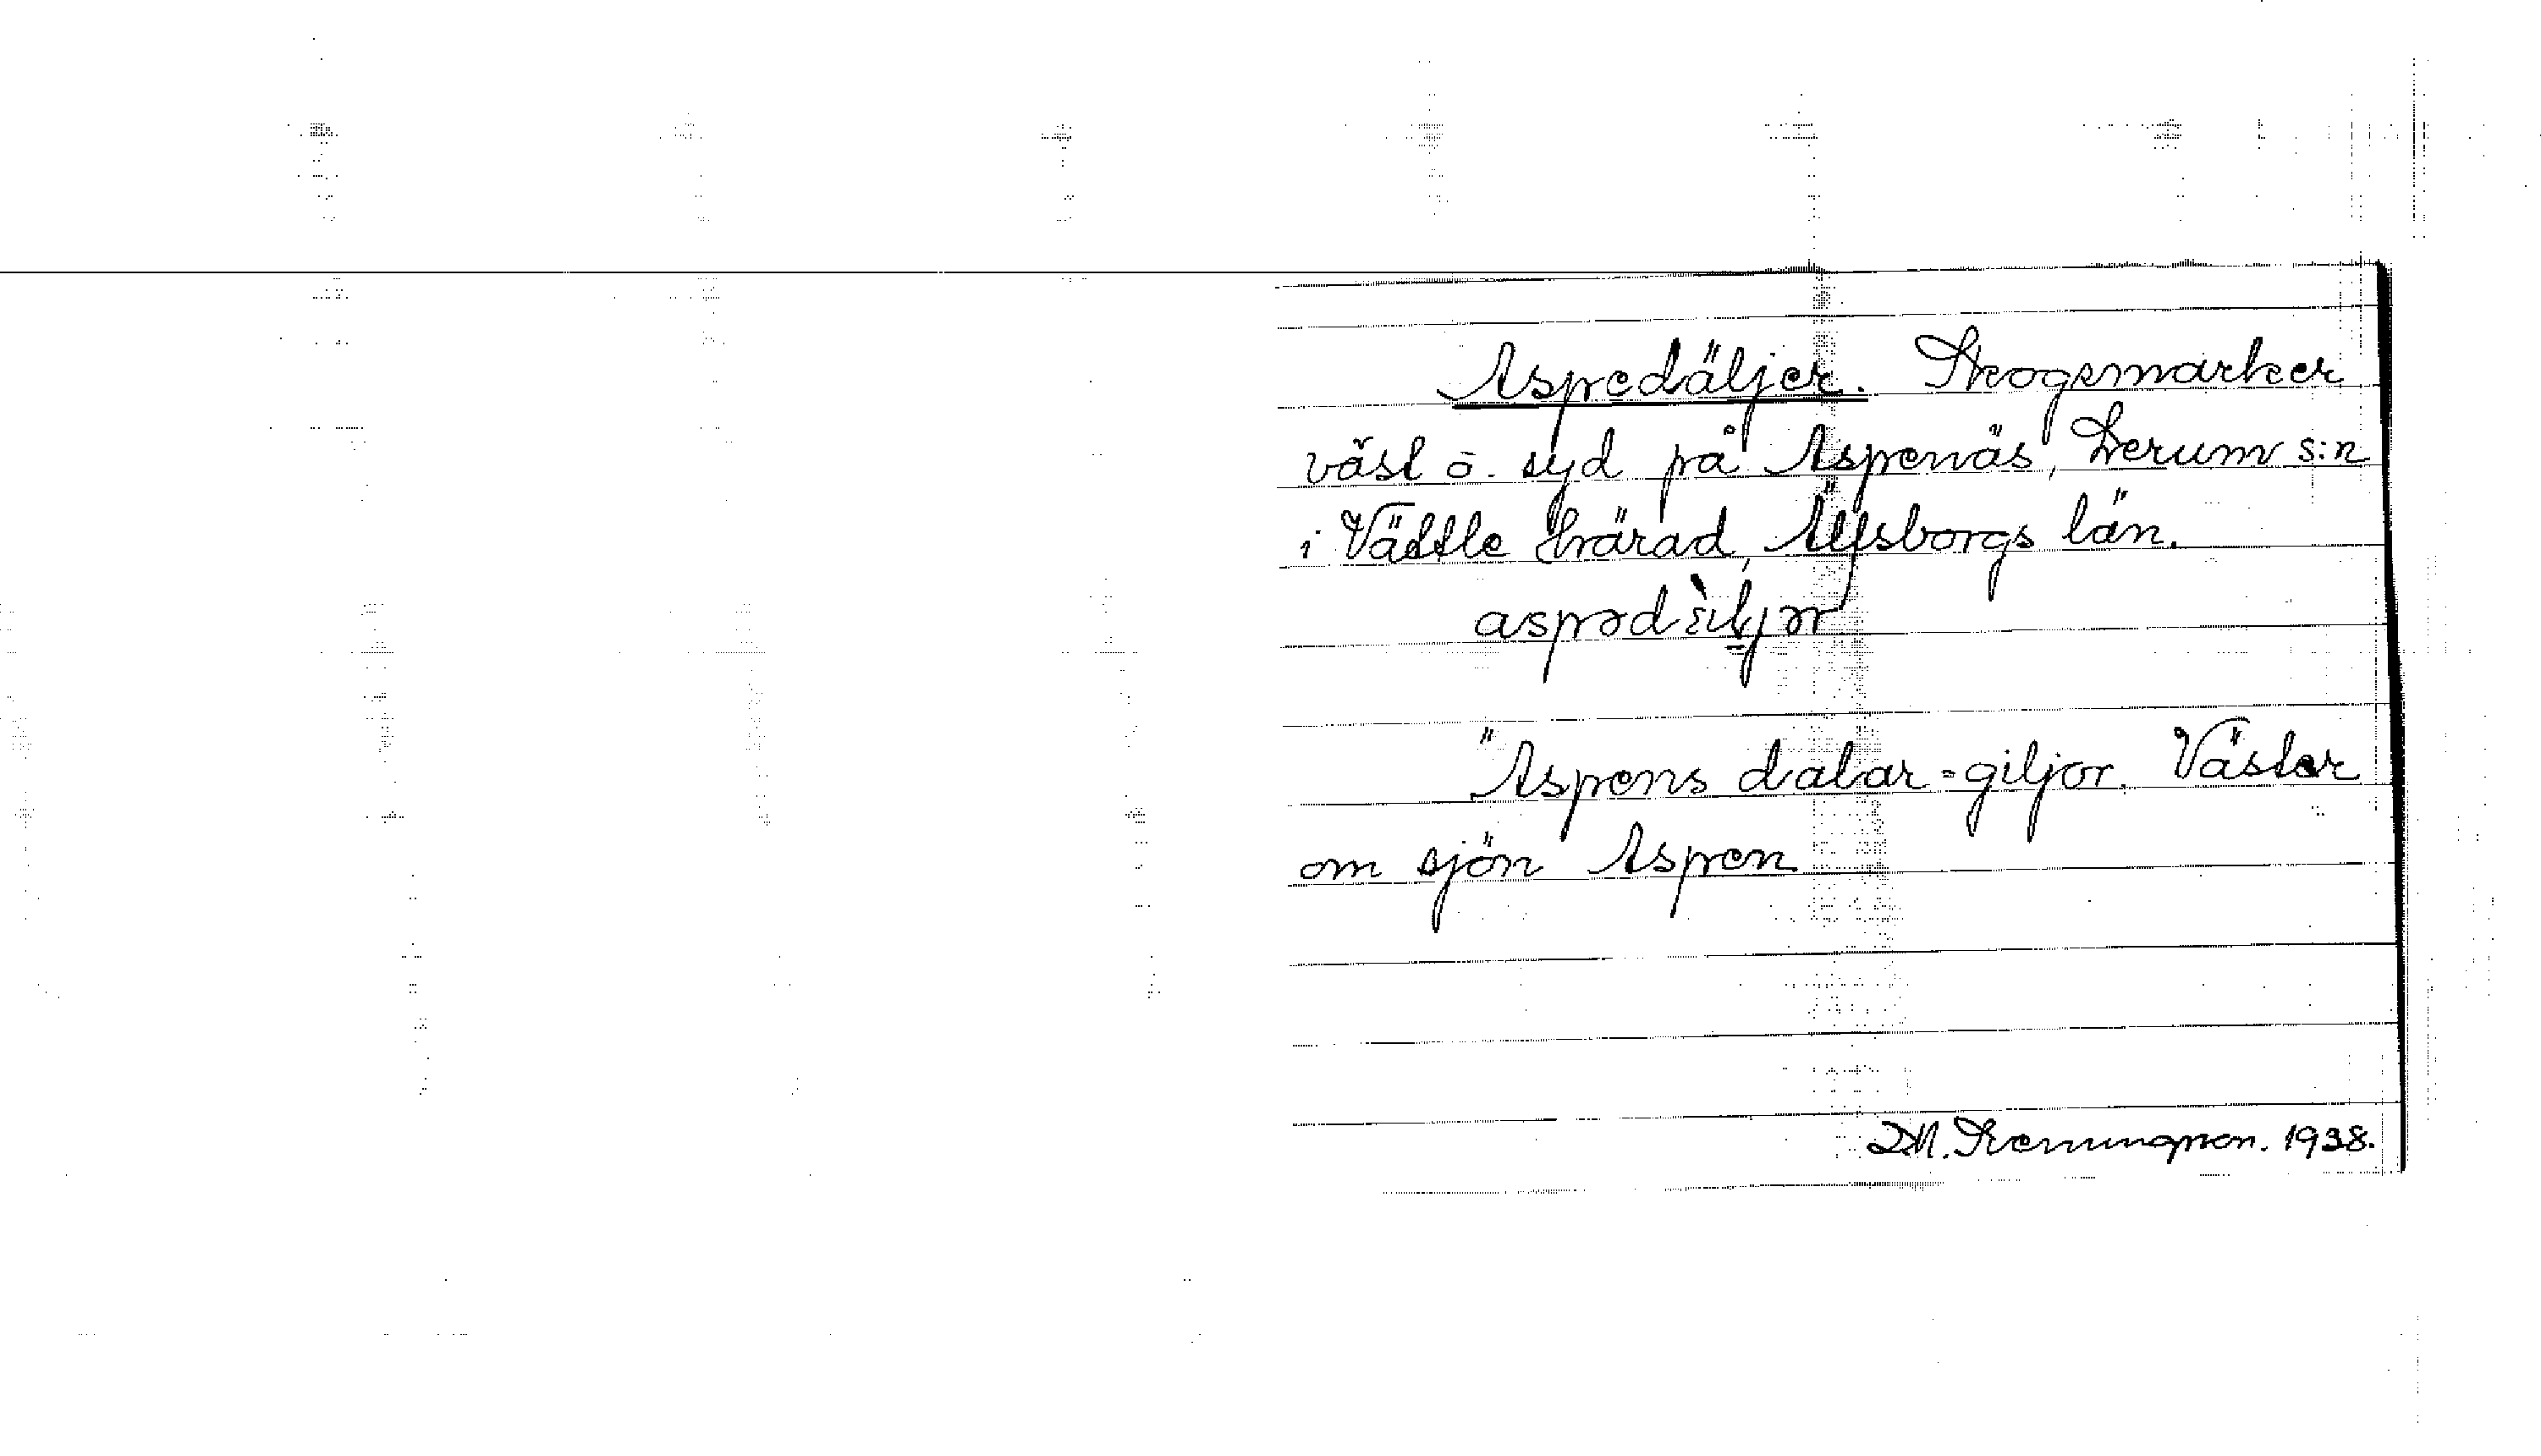 Aspedäljer. Skogsmarker
väst o. syd på Aspenäs, Lerum s:n
i Vättle härad, Älfsborgs län.
"Aspens dalar-giljor. Väster
om sjön Aspen
1938.